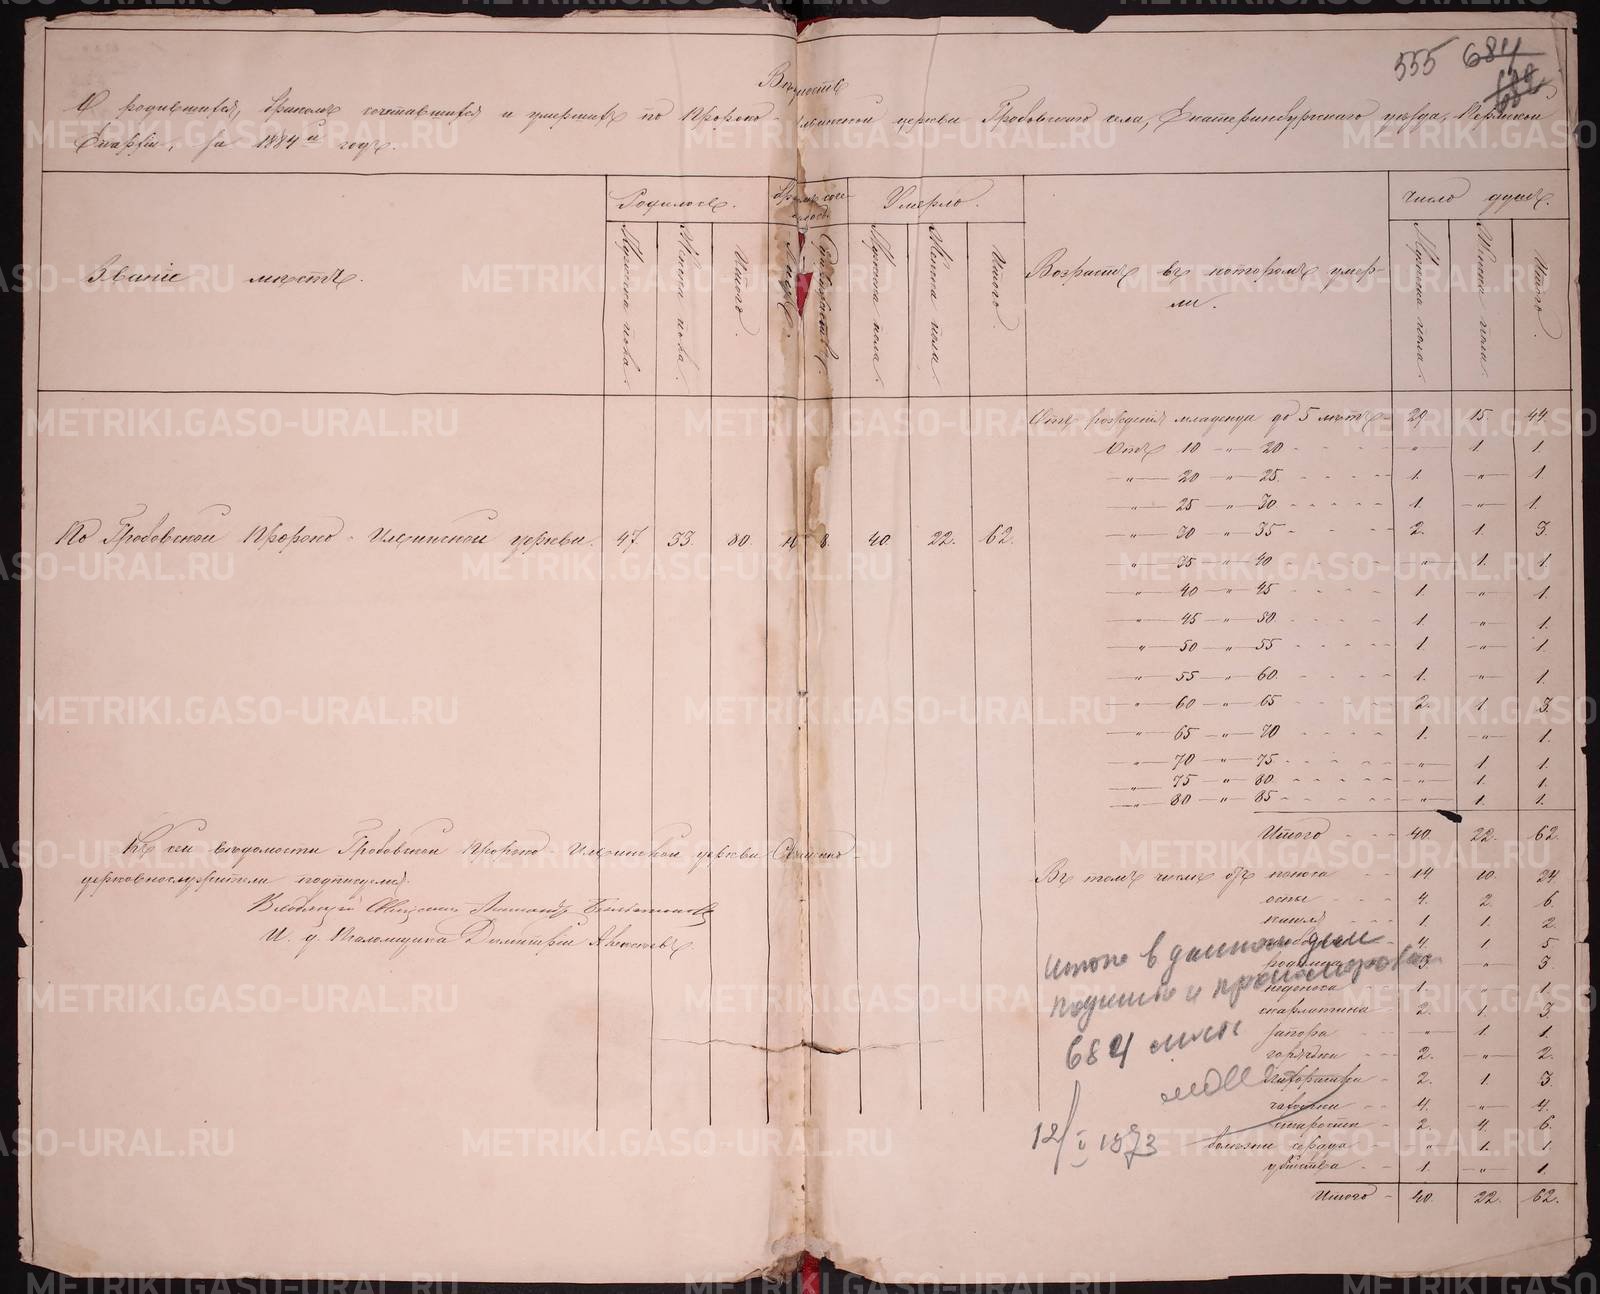 555 684
Ведомость
О родившихся, бракомъ сочетавшихся и умершихъ по Пророко-Ильинской церкви Гробовскаго села, Екатеринбургскаго уѣзда, Пермской
Епархіи, за 1884й годъ.
Званіе мѣстъ.
Родилось.
Мужска пола.
Женска пола.
Итого.
Умерло.
Мужска пола.
Женска пола.
Итого.
Возрастъ въ которомъ умер-
ли.
Число душъ.
Мужска пола.
Женска пола.
Итого.
По Гробовской Пророко-Ильинской церкви. 47. 33. 80. 8. 40. 22. 62.
Отъ рожденія младенца до 5 лѣтъ 29 15. 44
Отъ 10 — „ — 20 „ 1. 1.
„ 20 — „ — 25. 1. „ 1.
„ 25 — „ — 30. 1. „ 1.
„ 30 — „ — 35 2. 1. 3.
„ 35 — „ — 40 „ 1. 1.
„ 40 — „ — 45 1. „ 1.
„ 45 — „ — 50. 1. „ 1.
„ 50 — „ — 55 1. „ 1.
„ 55 — „ — 60. 1. „ 1.
„ 60 — „ — 65 2. 1. 3.
„ 65 — „ — 70 1. „ 1.
„ 70 — „ — 75 „ 1. 1.
„ 75 — „ — 80. „ 1. 1.
„ 80 — „ — 85 „ 1. 1.
Итого 40. 22. 62.
Къ сей ведомости Гробовской Пророко-Ильинской церкви Священно-
церковнослужители подписуемся.
И. д. Псаломщика Димитрій
Въ томъ числѣ отъ поноса 14 10. 24
оспы 4. 2. 6.
кашля 1. 1. 2.
4. 1 5
родимца 3 „ 3.
недоноса 1. „ 1.
скарлатина 2. 1. 3.
запора „ 1. 1.
горячки 2. „ 2.
2. 1. 3.
чахотки 4. „ 4.
старости 2. 4. 6.
болезни сердца „ 1. 1.
убійства 1. „ 1.
Итого 40. 22. 62.
Итого в данном деле
подшито и пронумеровано
684 листа
12/V 1973
METRIKI.GASO-URAL.RU